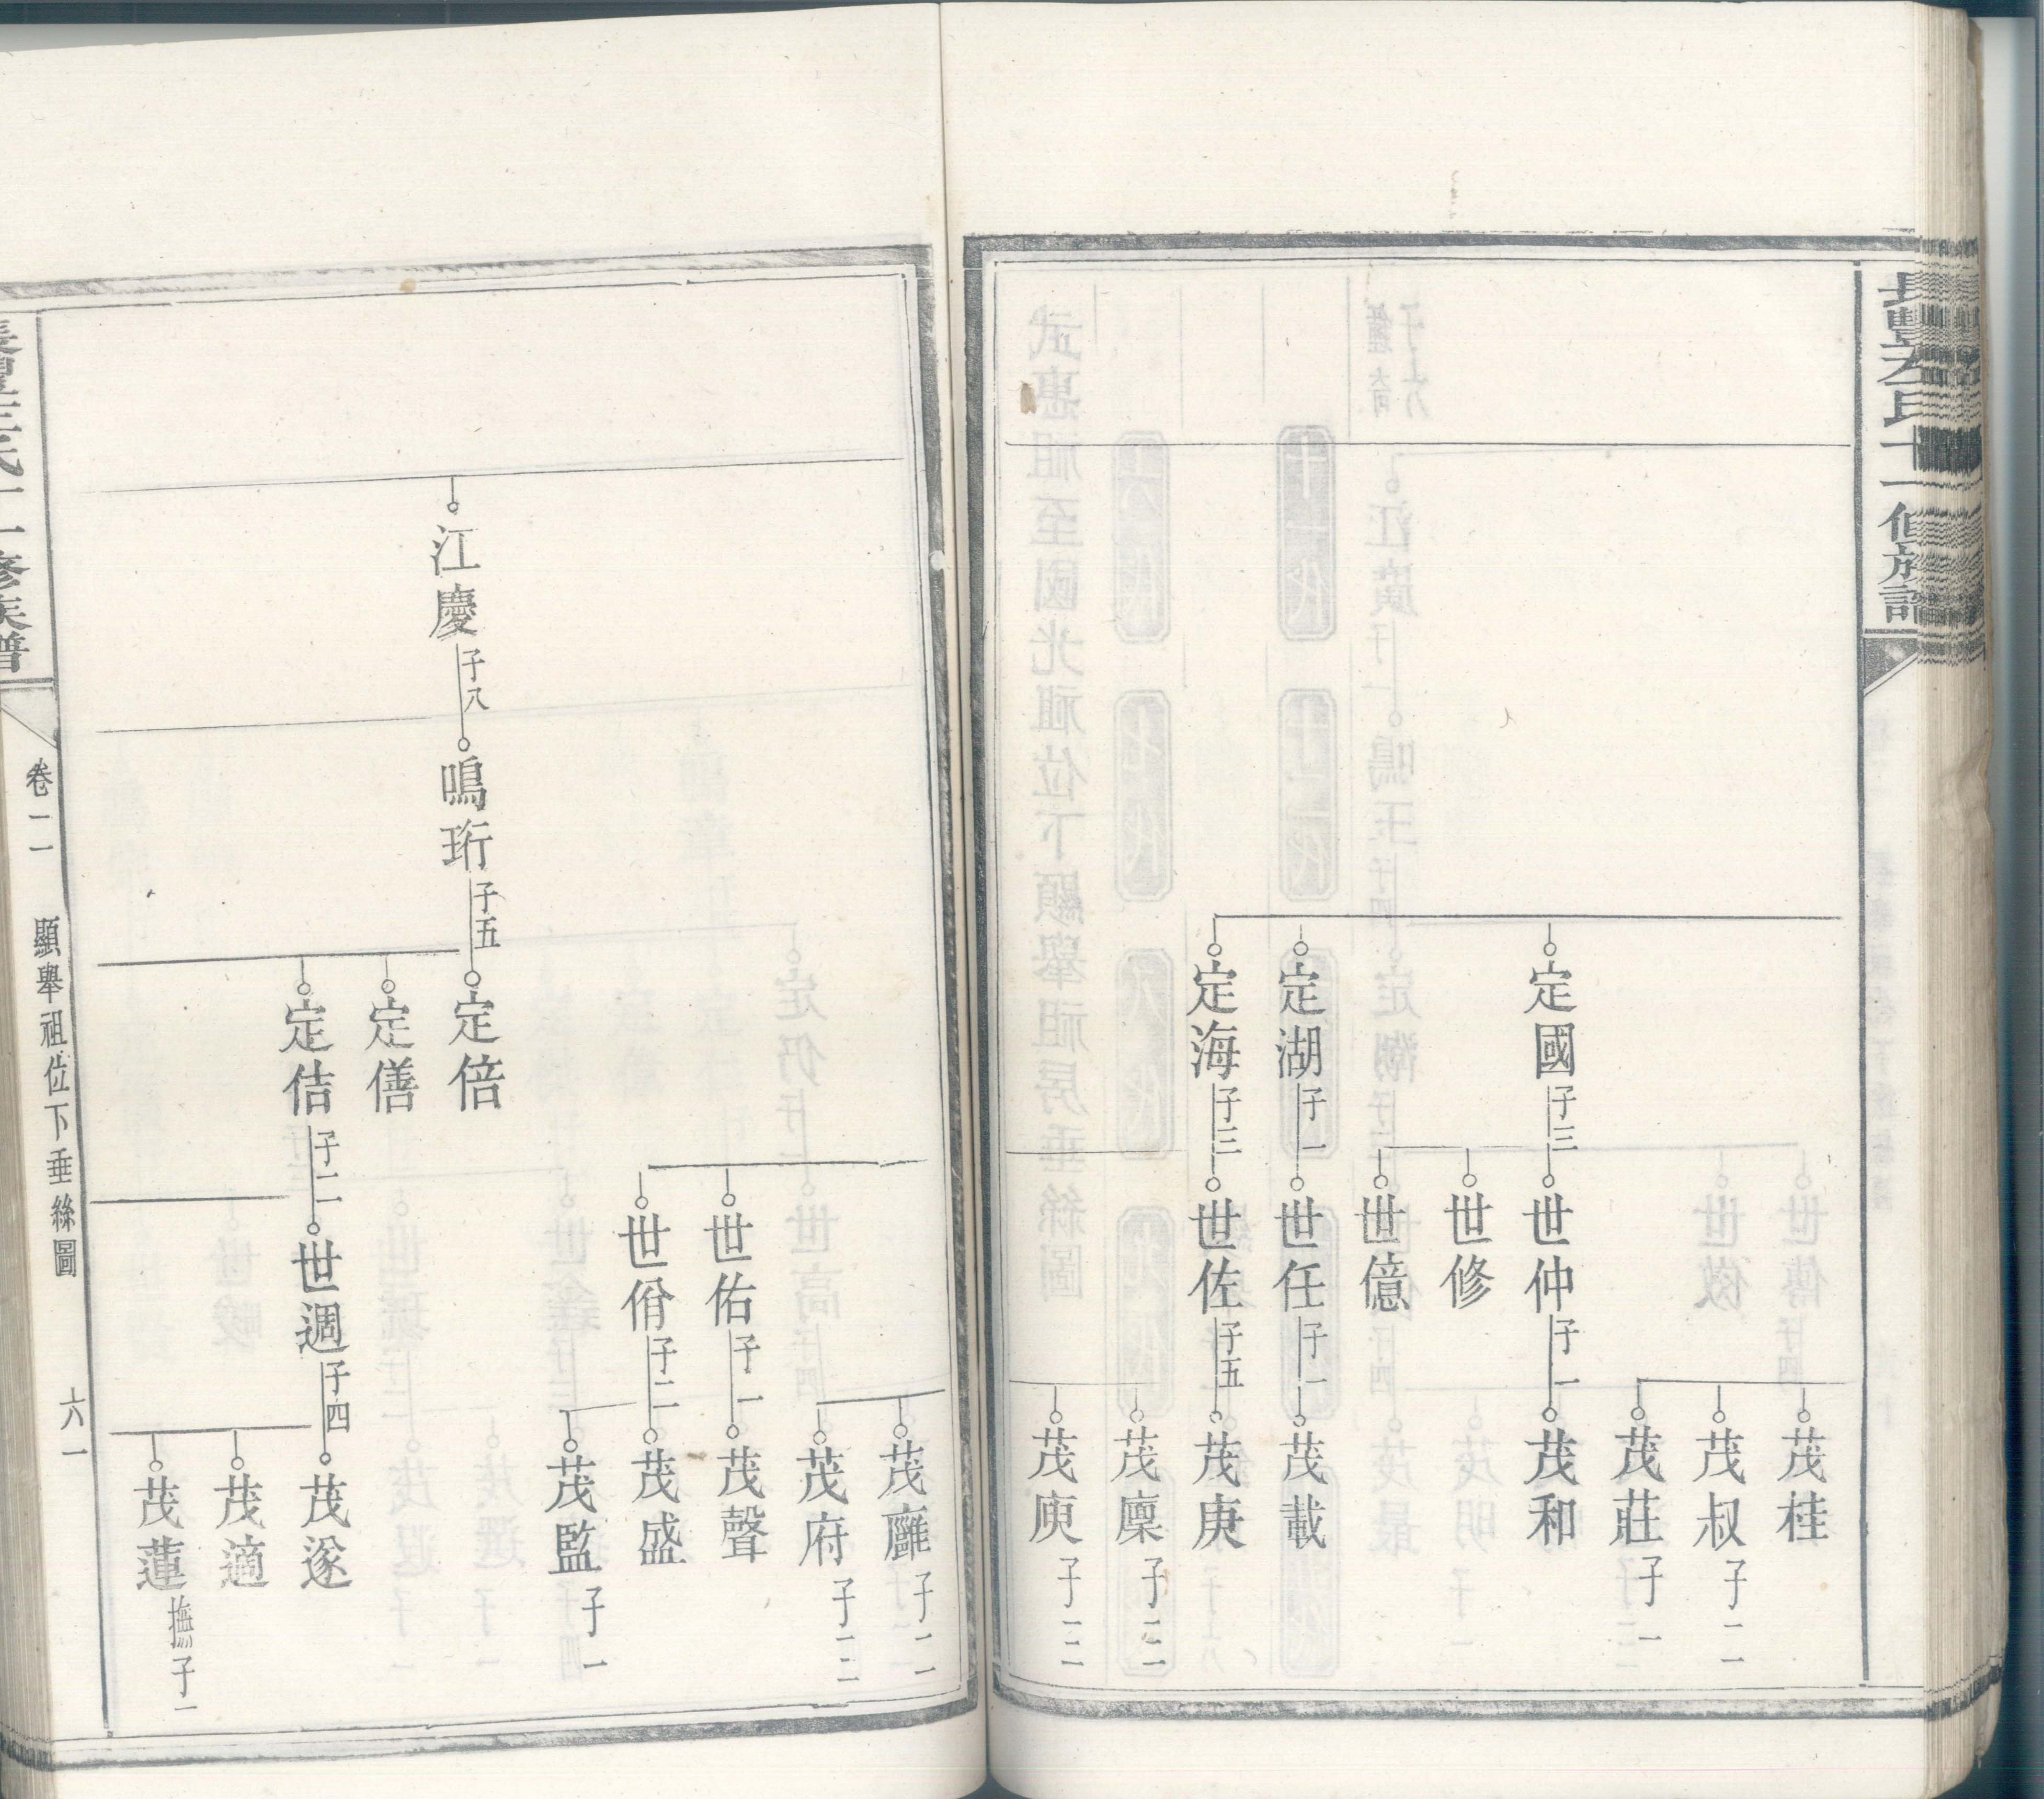 長豐左氏十一修族譜
茂桂
茂叔 子二
茂莊 子一
定國 子三
世仲 子一
茂和
世修
世億
定湖 子一
世任 子一
茂載
定海 子三
世佐 子五
茂庚
茂廩 子三
茂庾 子三
茂廱 子二
茂府 子三
世佑 子一
茂聲
世佾 子二
茂盛
茂監 子一
江慶 子八
鳴珩 子五
定倍
定僐
定佶 子二
世週 子四
茂遂
茂適
茂蓮 撫子一
長豐左氏十一修族譜
卷二 顯舉祖位下垂絲圖 六一